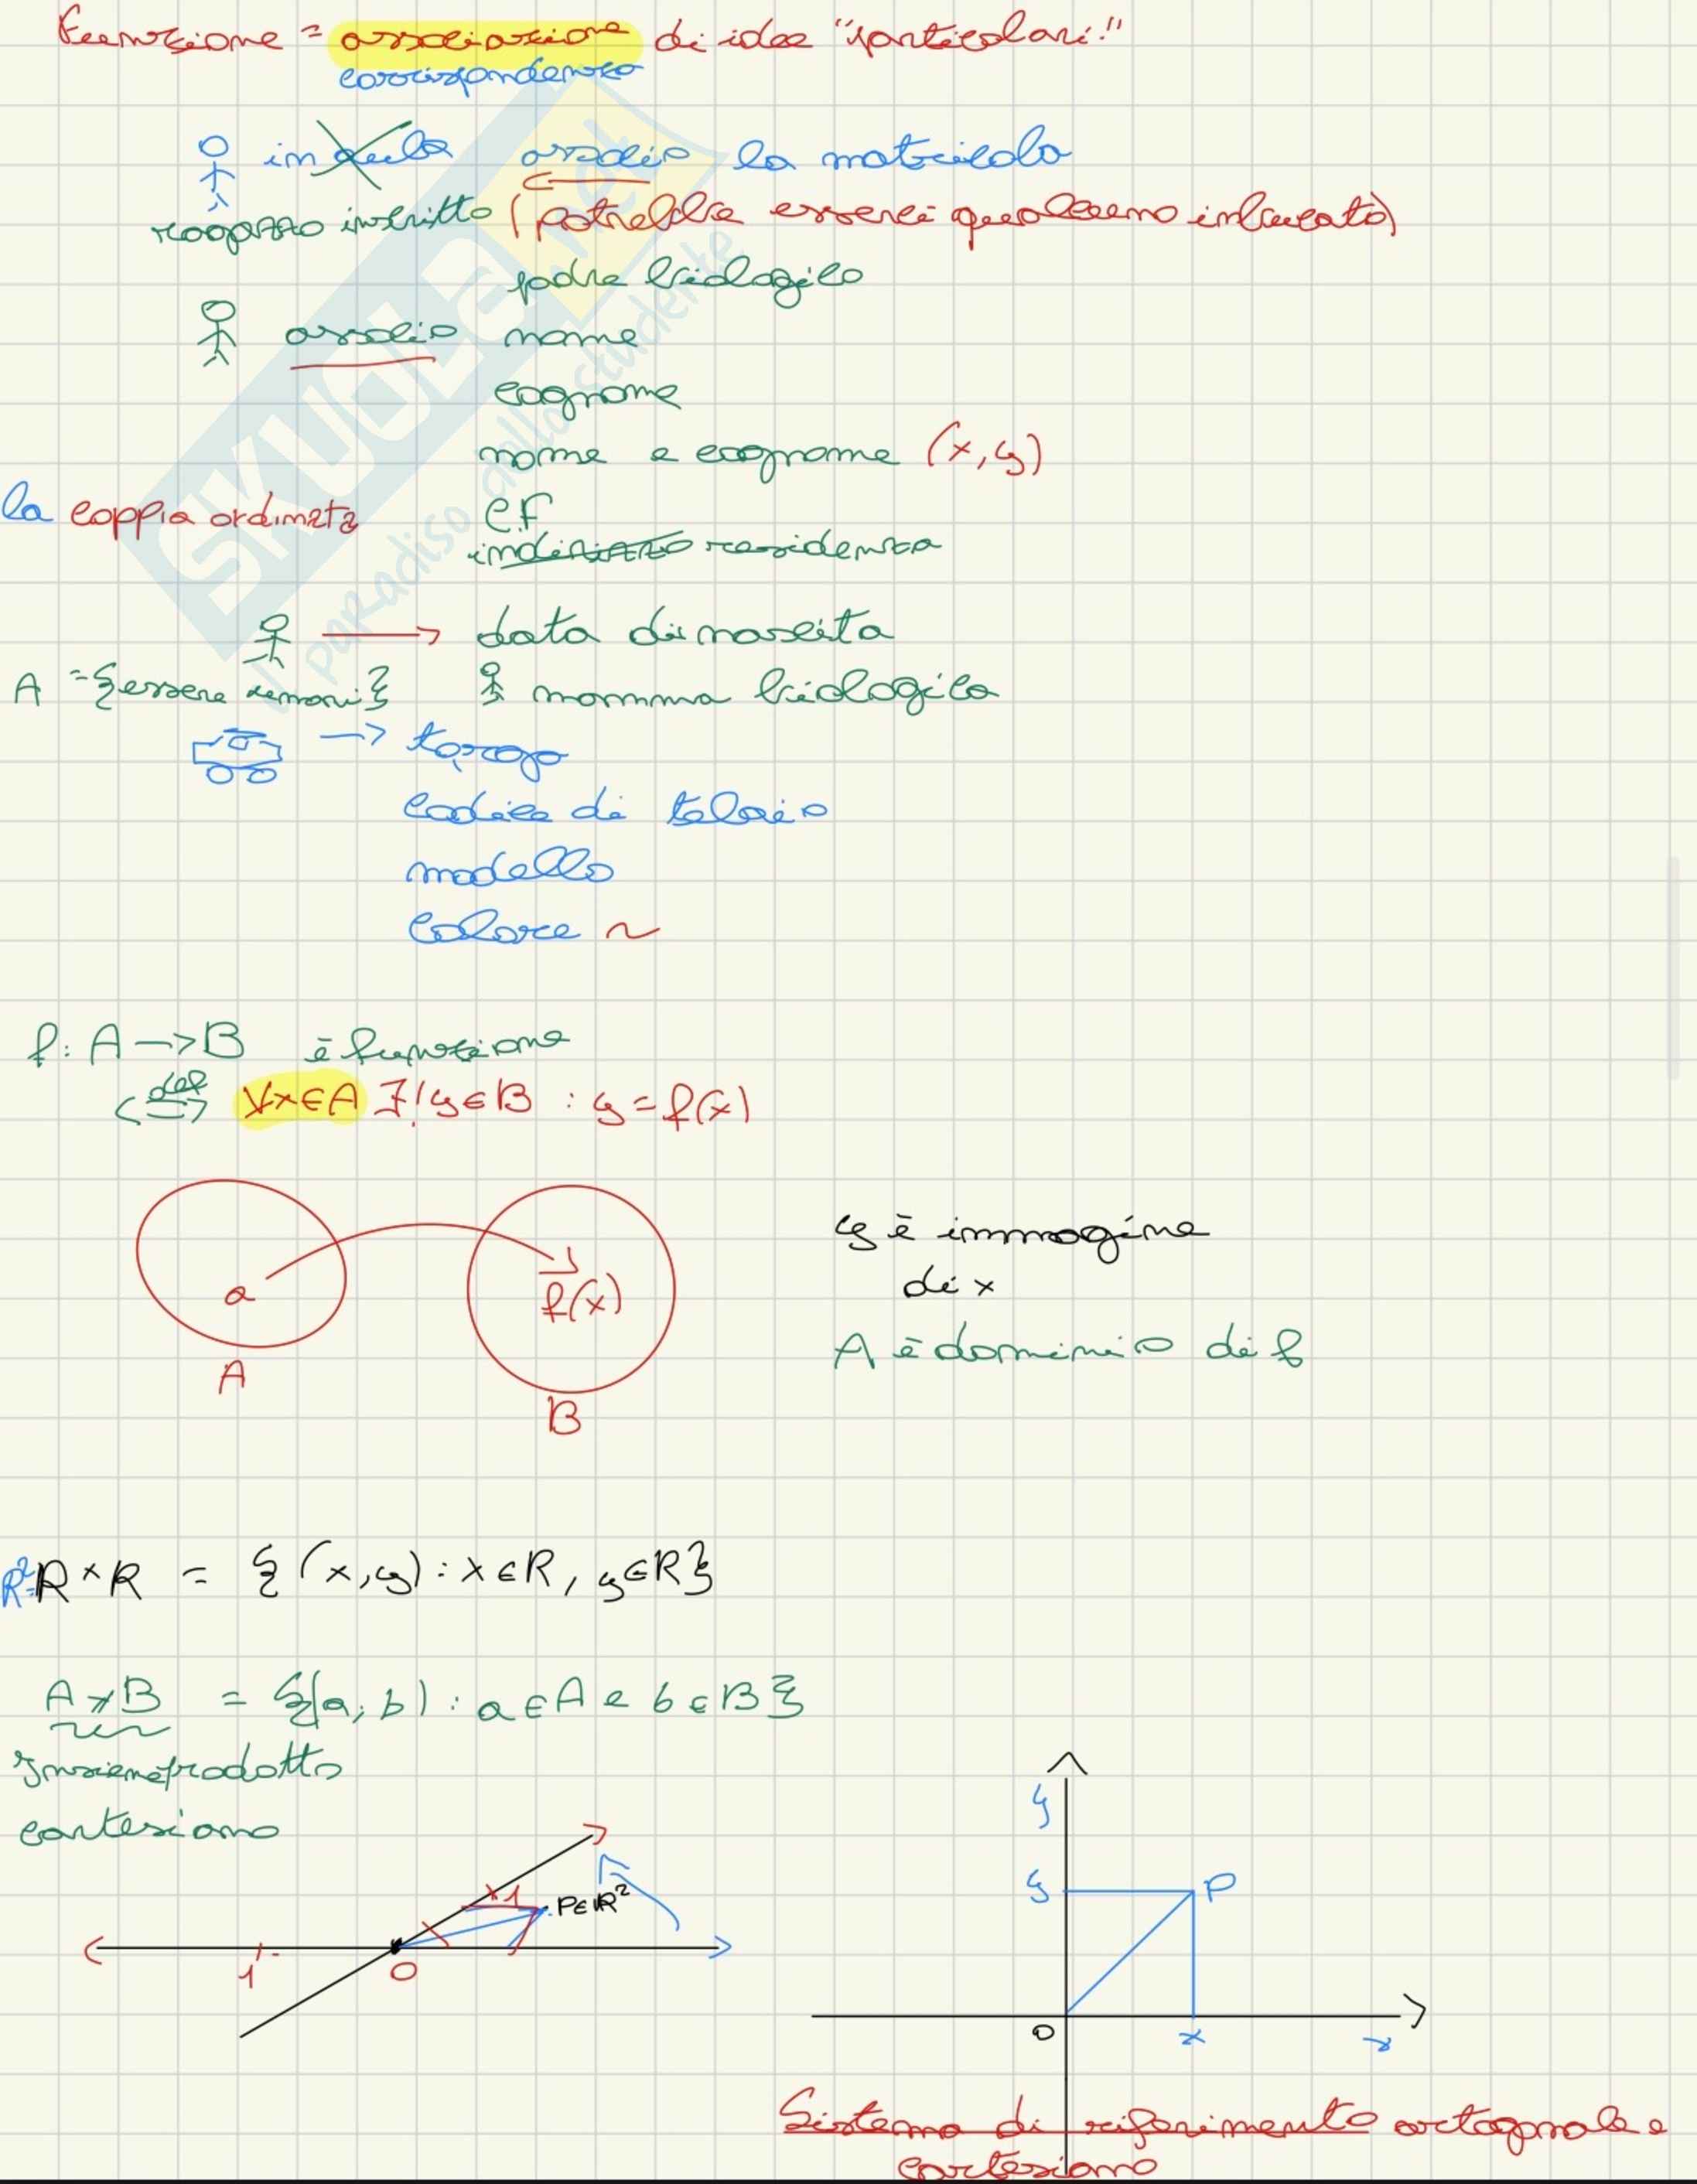 Funzione = associazione di idee "particolari!"
corrispondenza
in aula associo la matricola
ragazzo iscritto (potrebbe esserci qualcuno imbucato)
padre biologico
associo nome
cognome
nome e cognome (x,y)
la coppia ordinata c.f
indirizzo residenza
→ data di nascita
A = {essere umani} mamma biologica
→ targa
codice di telaio
modello
colore ~
f: A → B è funzione
def
⟺ ∀x∈A ∃!y∈B : y = f(x)
a f(x)
A B
y è immagine
di x
A è dominio di f
R²= R×R = {(x,y) : x∈R, y∈R}
A×B = {(a;b) : a∈A e b∈B}
Insieme prodotto
cartesiano
1 P∈R²
1 0
y
y P
0 x x
Sistema di riferimento ortogonale e
cartesiano
SKUOLA.net
il paradiso dello studente